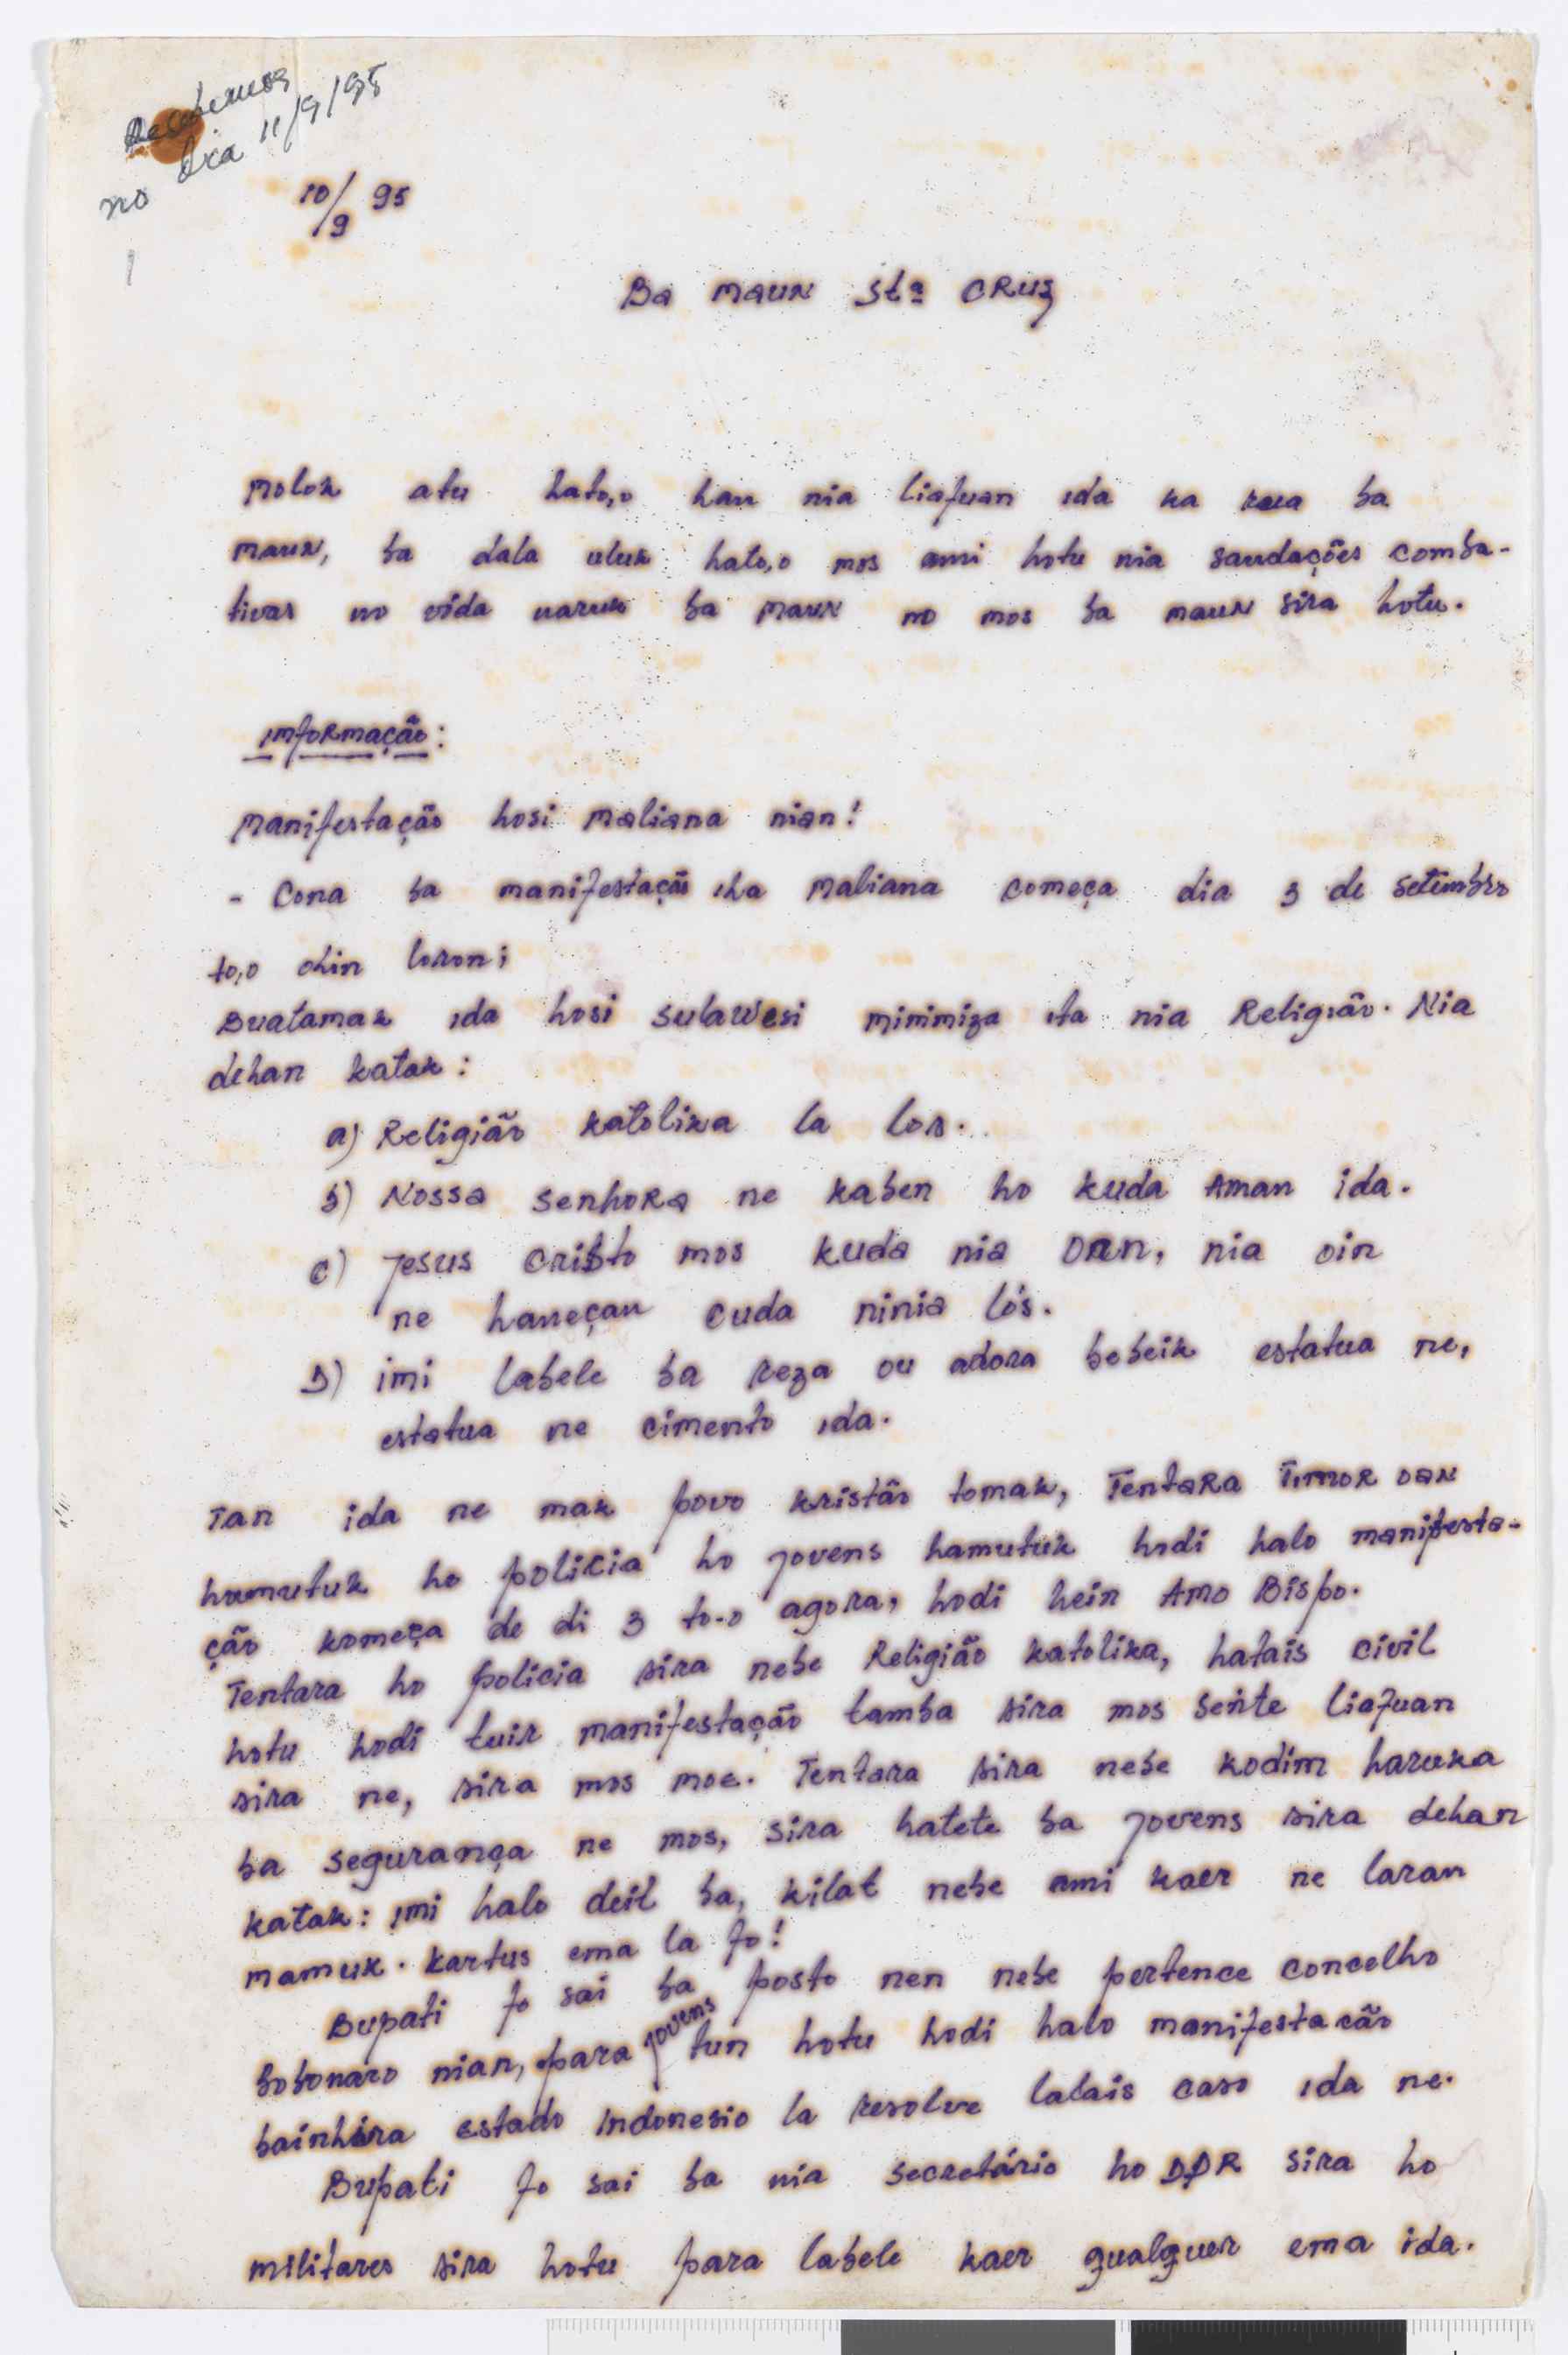 Recebemos
no dia 11/9/95
10/9 95
Ba maun Sta CRuz
Molok atu hato,o hau nia liafuan ida ka rua ba
maun, ba dala uluk hato,o mos ami hotu nia saudações comba-
tivas no vida naruk ba maun no mos ba maun sira hotu.
informação:
Manifestação hosi Maliana nian!
- Cona ba manifestação iha Maliana começa dia 3 de Setembro
to,o ohin loron;
Buatamak ida hosi Sulawesi minimiza ita nia Religião. Nia
dehan katak:
a) Religião katolika la los.
b) Nossa Senhora ne kaben ho kuda Aman ida.
c) Jesus Cristo mos kuda nia Oan, nia oin
ne haneçan cuda ninia lós.
D) imi labele ba reza ou adora bebeik estatua ne,
estatua ne cimento ida.
Tan ida ne mak povo kristão tomak, Tentara Timor oan
hamutuk ho policia ho jovens hamutuk hodi halo manifesta-
ção komeça de di 3 to-o agora, hodi hein Amo Bispo.
Tentara ho policia sira nebe Religião katolika, hatais civil
hotu hodi tuir manifestação tamba sira mos sente liafuan
sira ne, sira mos moe. Tentara sira nebe kodim haruka
ba segurança ne mos, sira hatete ba jovens sira dehan
katak: imi halo deit ba, kilat nebe ami kaer ne laran
mamuk. Kartus ema la fo!
Bupati fo sai ba posto nen nebe pertence concelho
bobonaro nian, para jovens tun hotu hodi halo manifestacão
bainhira estado indonesio la resolve lalais caso ida ne.
Bupati fo sai ba nia secretário ho DPR sira ho
militares sira hotu para labele kaer qualquer ema ida.